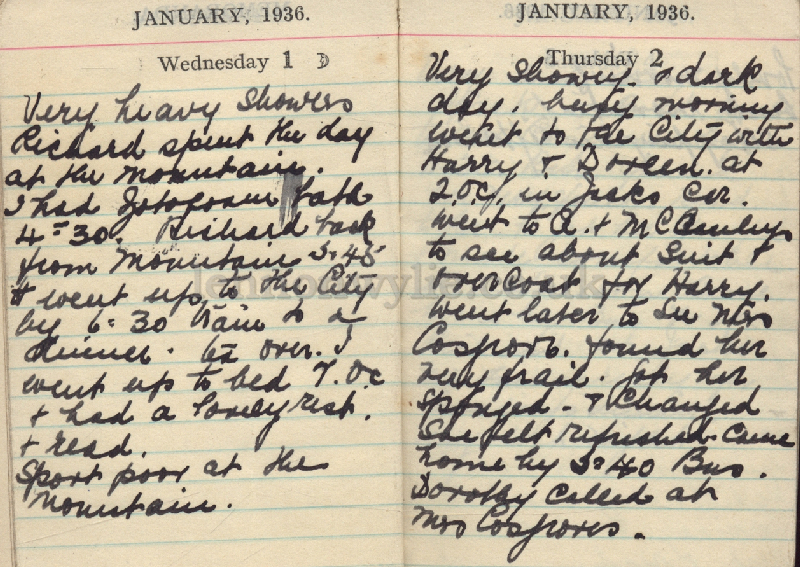 JANUARY, 1936.
Wednesday 1
Very heavy showers
Richard spent the day
at the Mountain.
I had bath
4=30. Richard back
from Mountain 5=45
& went up to the City
by 6=30 train to a
dinner. over. I
went up to bed 7.oc
+ had a lovely rest.
+ read.
Sport poor at the
Mountain.
JANUARY, 1936.
Thursday 2
Very showery. & dark
day. busy morning
went to the City with
Harry + Doreen. at
2.oc. in car.
went to A. +
to see about Suit +
overcoat for Harry.
went later to see Mrs
Cosgrove. found her
very frail. got her
sponged. + Changed
She felt refreshed. Came
home by 5=40 Bus.
Dorothy called at
Mrs Cosgroves.